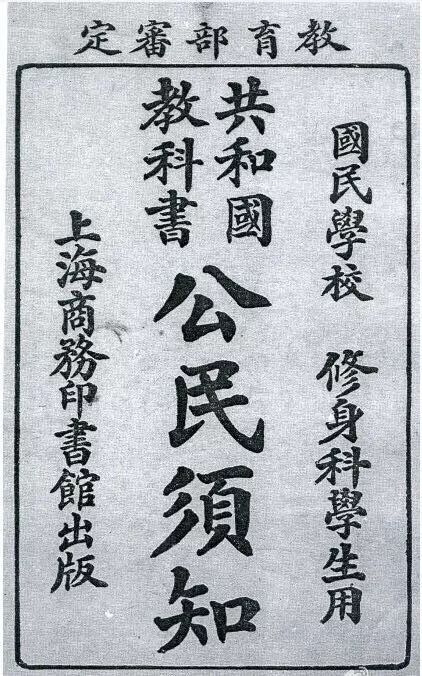 教育部審定
國民學校 修身科學生用
共和國
教科書
公民須知
上海商務印書館出版